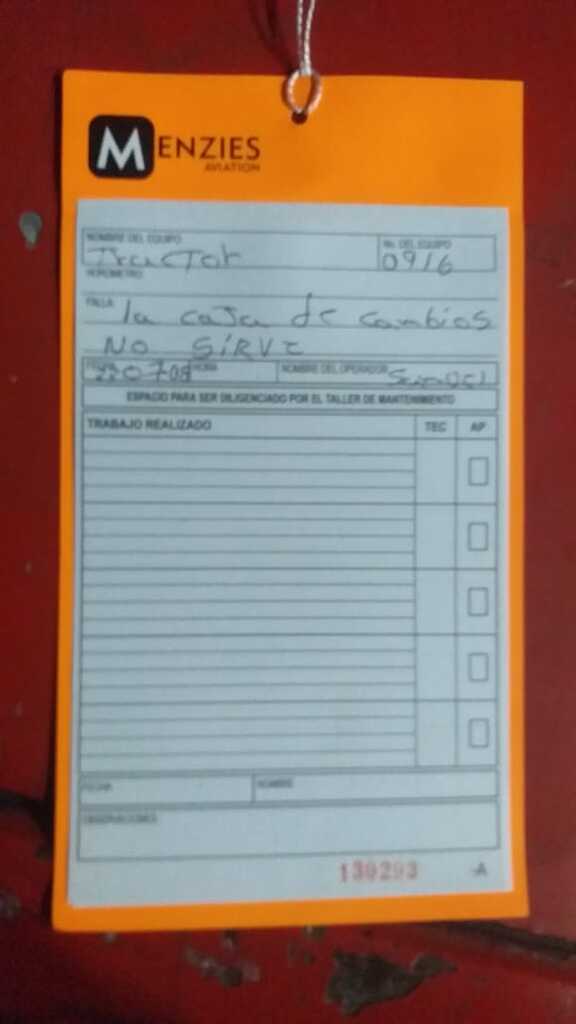 MENZIES
AVIATION
NOMBRE DEL EQUIPO No. DEL EQUIPO
Tractor 0916
HOROMETRO
FALLA la caja de cambios
NO SIRVE
FECHA HORA NOMBRE DEL OPERADOR
ESPACIO PARA SER DILIGENCIADO POR EL TALLER DE MANTENIMIENTO
TRABAJO REALIZADO TEC AP
FECHA NOMBRE
OBSERVACIONES
139293 -A